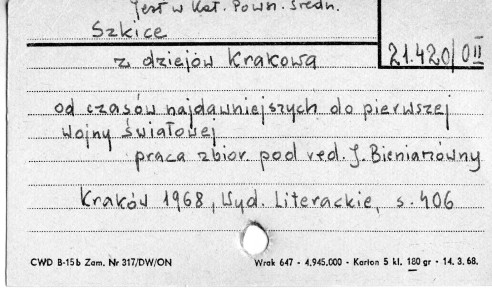 Jest w Kat. Powsz. Średn.
Szkice
z dziejów Krakowa
21.420/0II
od czasów najdawniejszych do pierwszej
wojny światowej
praca zbior. pod red. J. Bieniarzówny
Kraków 1968, Wyd. Literackie, s. 406
CWD B-15b Zam. Nr 317/DW/ON
Wrak 647 - 4.945.000 - Karton 5 kl. 180 gr - 14. 3. 68.